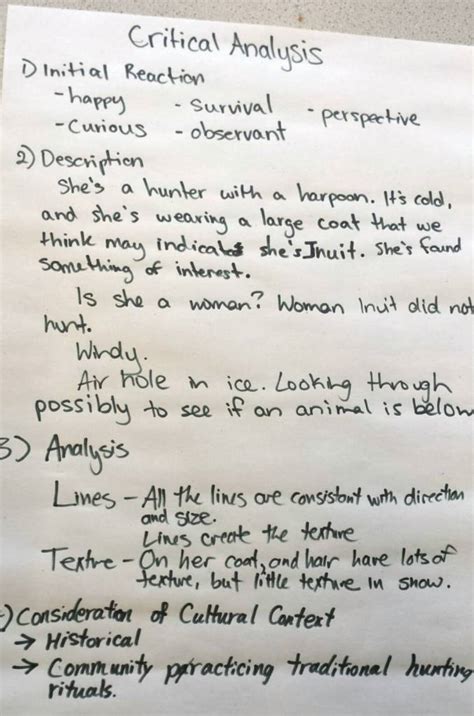 Critical Analysis
1) Initial Reaction
-happy - Survival - perspective
-Curious - observant
2) Description
She's a hunter with a harpoon. It's cold,
and she's wearing a large coat that we
think may indicates she's Inuit. She's found
something of interest.
Is she a woman? Woman Inuit did not
hunt.
Windy.
Air hole in ice. Looking through
possibly to see if an animal is below
3) Analysis
Lines - All the lines are consistant with direction
and size.
Lines create the texture
Textre - On her coat, and hair have lots of
texture, but little texture in snow.
) Consideration of Cultural Context
→ Historical
→ Community ppracticing traditional hunting
rituals.